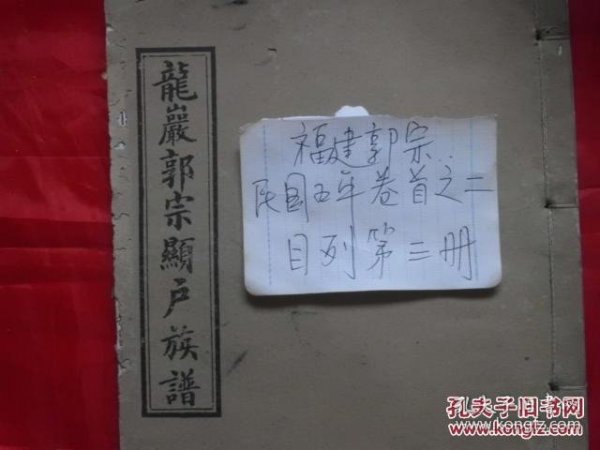 龍巖郭宗顯戶族譜
福建郭宗
民国五年卷首之二
目列第三册
孔夫子旧书网
www.kongfz.com